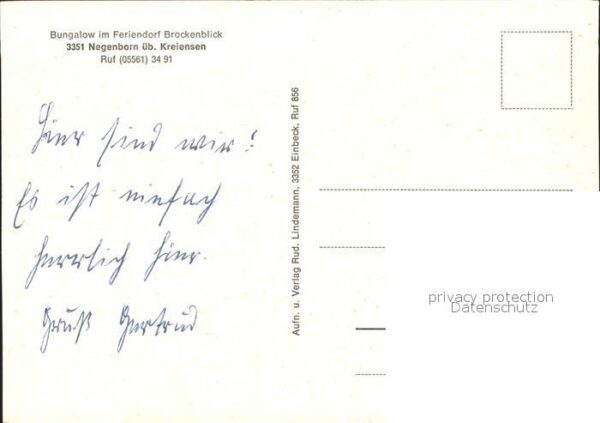 Bungalow im Feriendorf Brockenblick
3351 Negenborn üb. Kreiensen
Ruf (05561) 34 91
Hier sind wir!
Es ist einfach
herrlich hier.
Gruß Gertrud
Aufn. u. Verlag Rud. Lindemann, 3352 Einbeck, Ruf 856
privacy protection
Datenschutz